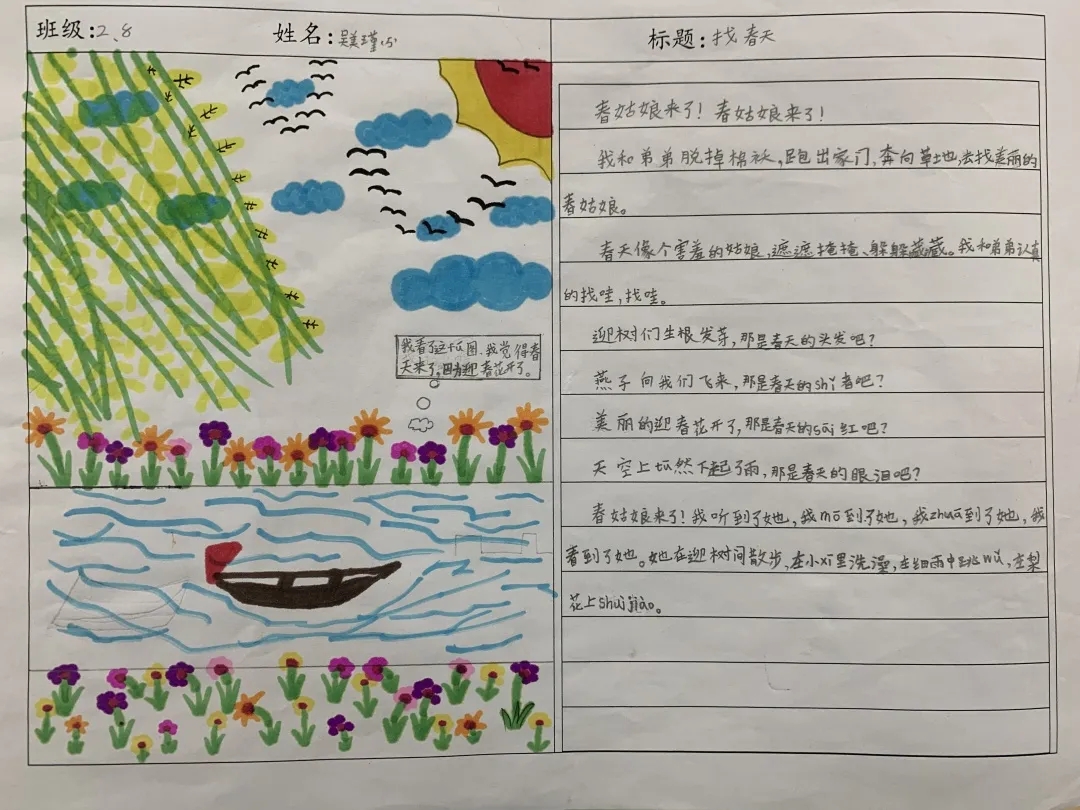 班级:2、8
姓名:吴瑾
标题:找春天
我看了这幅图,我觉得春
天来了,因为迎春花开了。
春姑娘来了!春姑娘来了!
我和弟弟脱掉棉袄,跑出家门,奔向草地,去找美丽的
春姑娘。
春天像个害羞的姑娘,遮遮掩掩、躲躲藏藏。我和弟弟认真
的找哇,找哇。
迎树们生根发芽,那是春天的头发吧?
燕子向我们飞来,那是春天的shǐ者吧?
美丽的迎春花开了,那是春天的sāi红吧?
天空上忽然下起了雨,那是春天的眼泪吧?
春姑娘来了!我听到了她,我mō到了她,我zhuā到了她,我
看到了她。她在迎树间散步,在小xī里洗澡,在细雨中跳wǔ,在梨
花上shuì jiào。